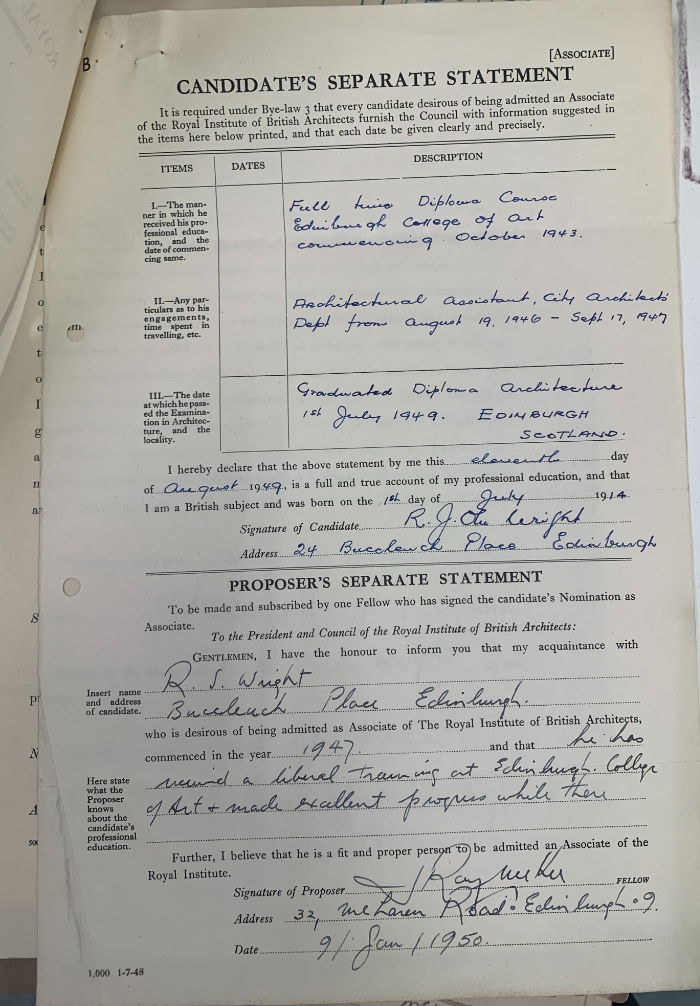 B.
[ASSOCIATE]
CANDIDATE'S SEPARATE STATEMENT
It is required under Bye-law 3 that every candidate desirous of being admitted an Associate
of the Royal Institute of British Architects furnish the Council with information suggested in
the items here below printed, and that each date be given clearly and precisely.
ITEMS DATES DESCRIPTION
I.—The man-
ner in which he
received his pro-
fessional educa-
tion, and the
date of commen-
cing same.
Full time Diploma Course
Edinburgh College of Art
commencing October 1943.
II.—Any par-
ticulars as to his
engagements,
time spent in
travelling, etc.
Architectural Assistant, City Architects
Dept from August 19, 1946 – Sept 17, 1947
III.—The date
at which he pass-
ed the Examina-
tion in Architec-
ture, and the
locality.
Graduated Diploma Architecture
1st July 1949. EDINBURGH
SCOTLAND.
I hereby declare that the above statement by me this eleventh day
of August 1949, is a full and true account of my professional education, and that
I am a British subject and was born on the 1st day of July 1914
Signature of Candidate R. J. Wright
Address 24 Buccleuch Place Edinburgh
PROPOSER'S SEPARATE STATEMENT
To be made and subscribed by one Fellow who has signed the candidate's Nomination as
Associate.
To the President and Council of the Royal Institute of British Architects:
GENTLEMEN, I have the honour to inform you that my acquaintance with
Insert name
and address
of candidate.
R. S. Wright
Buccleuch Place Edinburgh.
who is desirous of being admitted as Associate of The Royal Institute of British Architects,
commenced in the year 1947 and that he has
Here state
what the
Proposer
knows
about the
candidate's
professional
education.
a liberal training at Edinburgh. College
of Art + made excellent progress while there
Further, I believe that he is a fit and proper person to be admitted an Associate of the
Royal Institute.
Signature of Proposer FELLOW
Address 32, McLaren Road. Edinburgh. 9.
Date 9/ Jan / 1950.
1,000 1-7-48